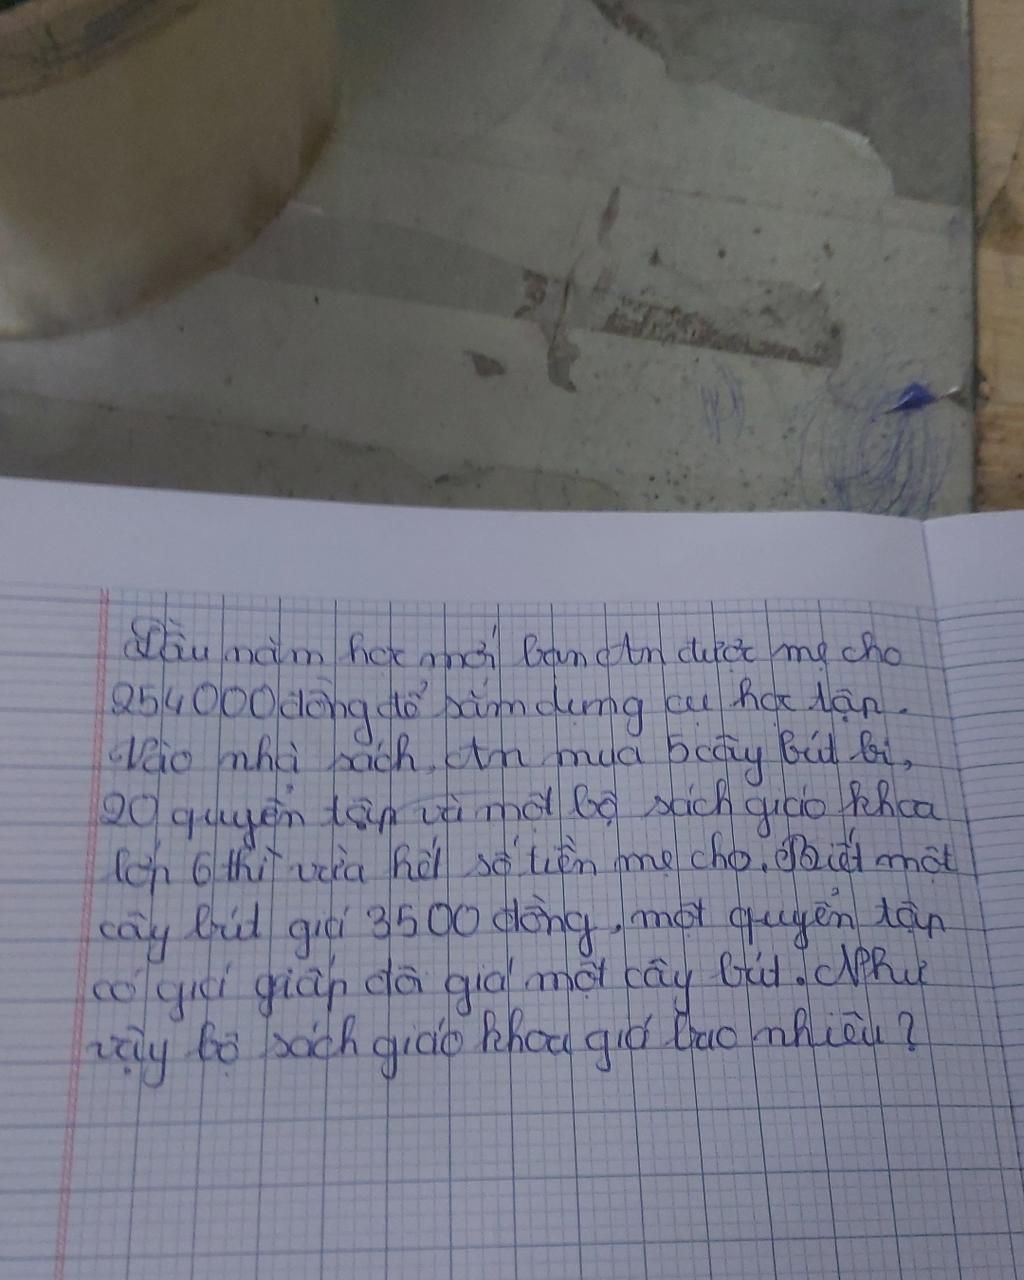 Đầu năm học mới bạn An được mẹ cho
254000 đồng để sắm dụng cụ học tập.
Vào nhà sách, An mua 5 cây bút bi,
20 quyển tập và một bộ sách giáo khoa
lớp 6 thì vừa hết số tiền mẹ cho. Biết một
cây bút giá 3500 đồng, một quyển tập
có giá gấp đôi giá một cây bút. Như
vậy bộ sách giáo khoa giá bao nhiêu?